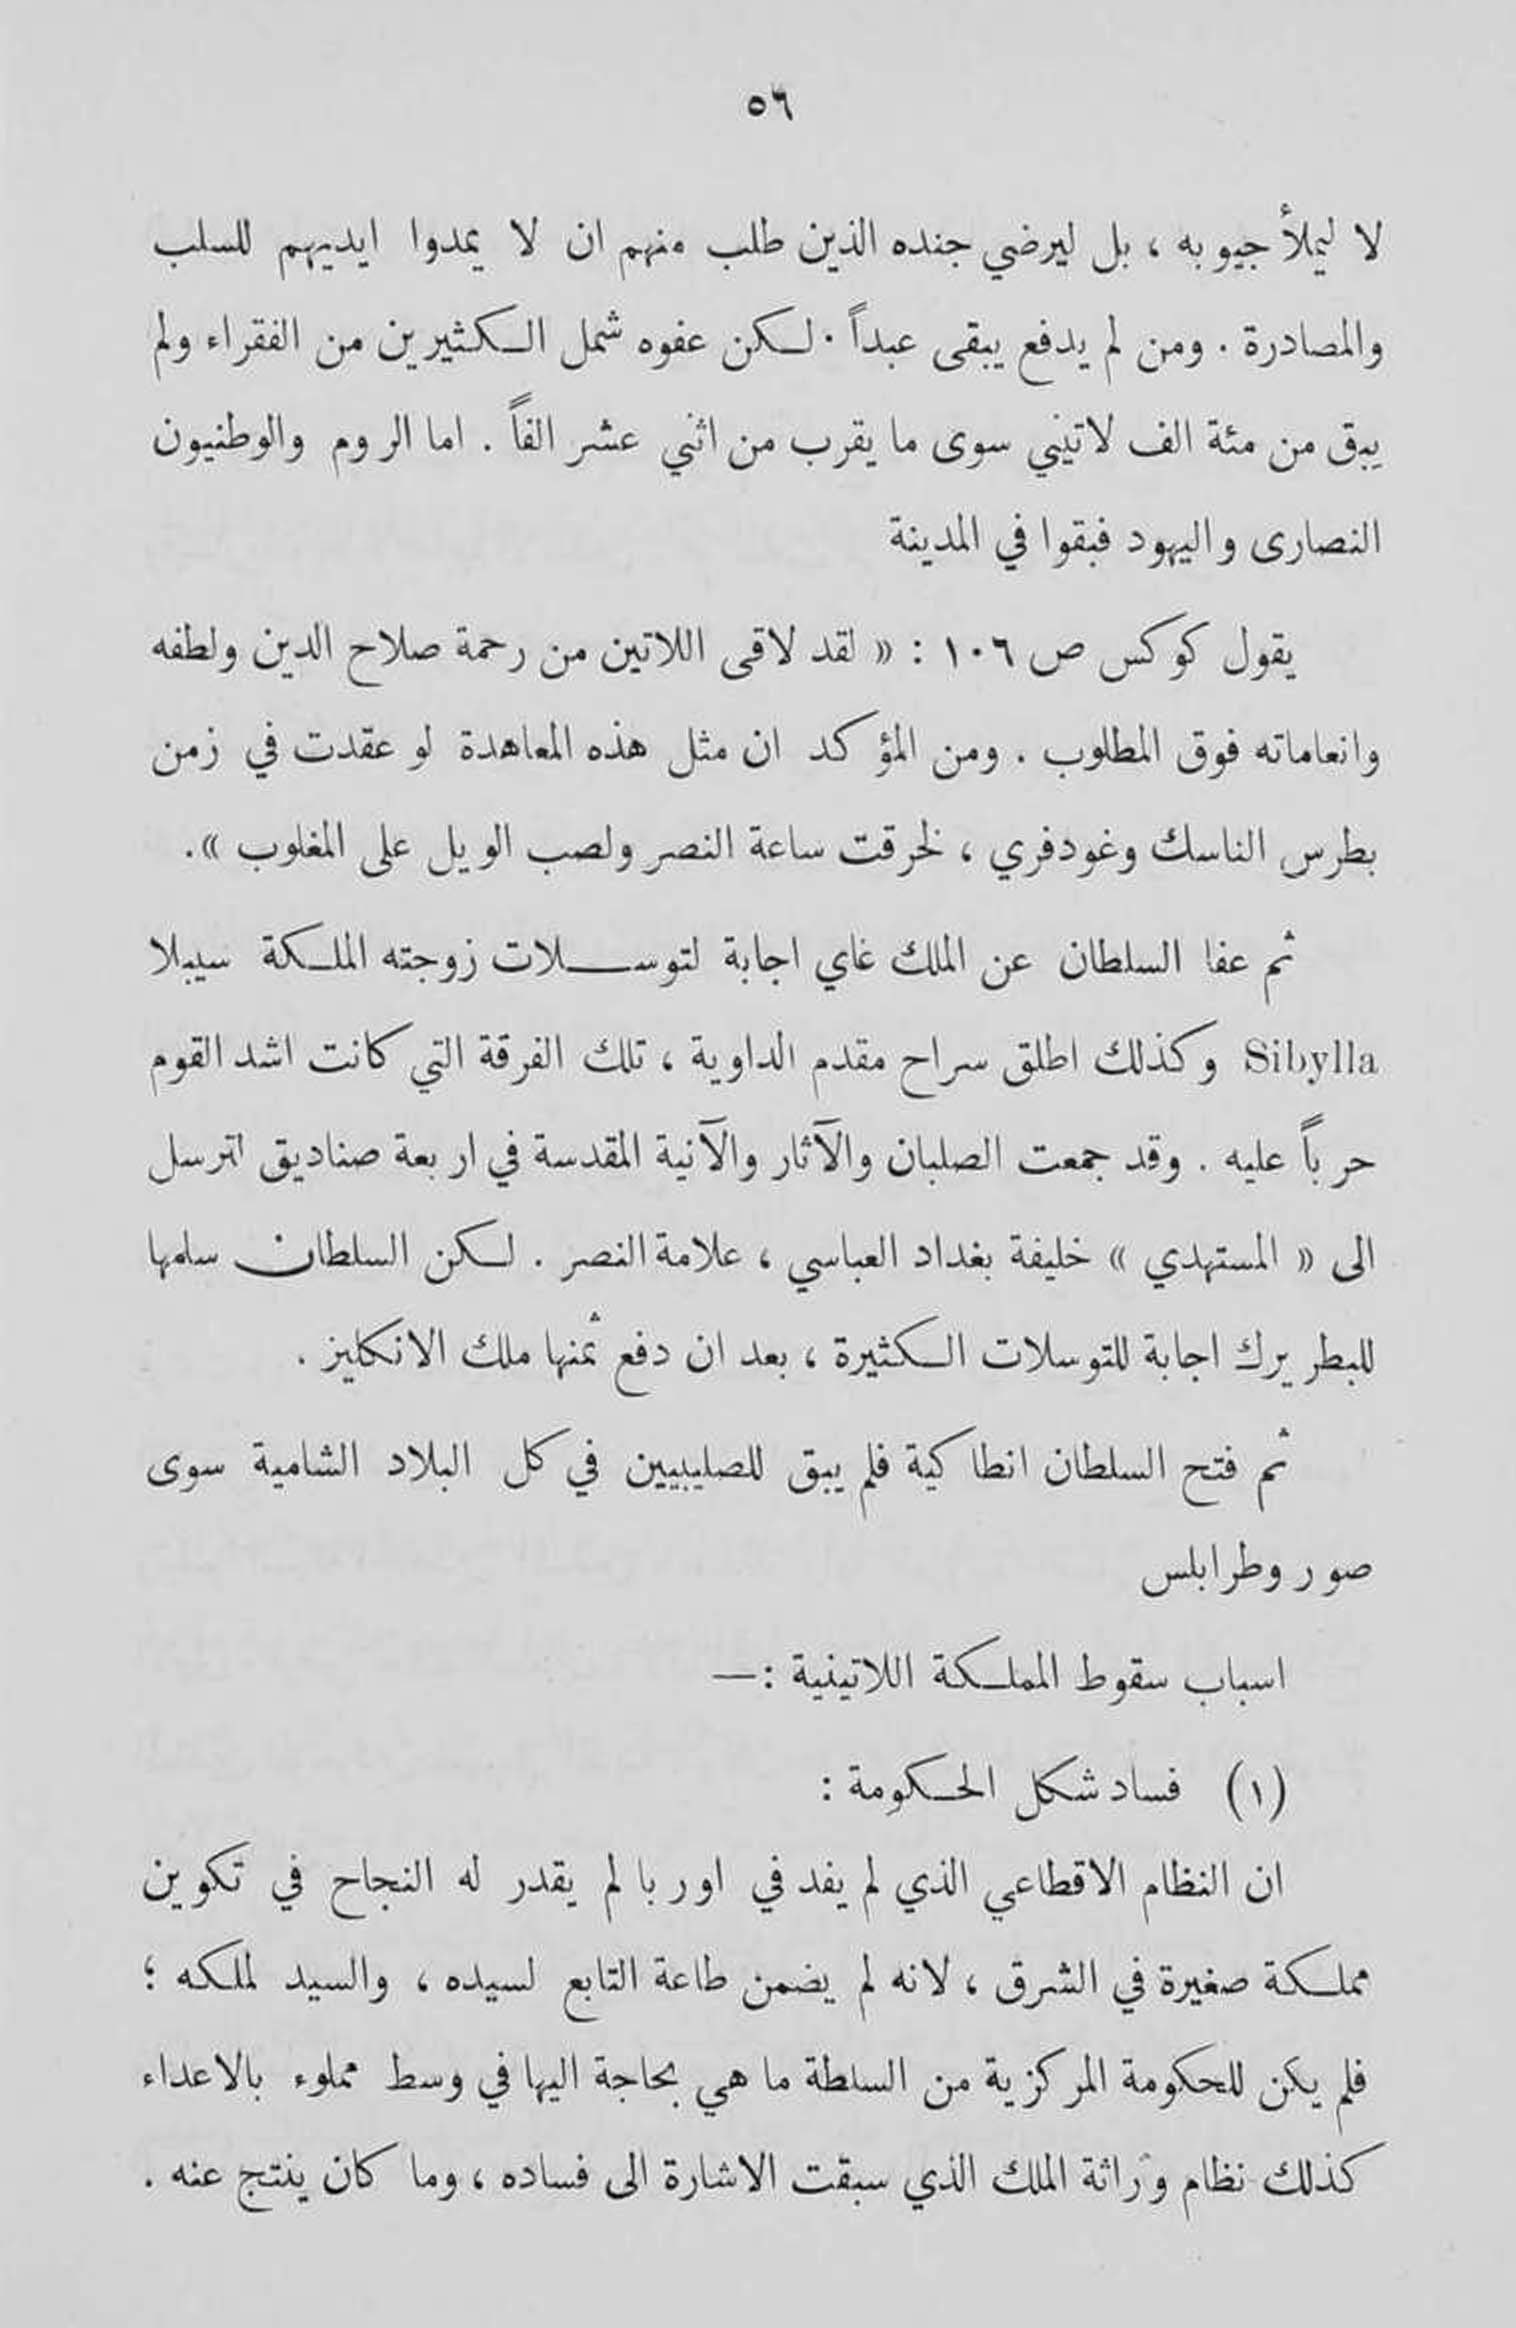 ٥٦
لا ليملأ جيوبه ، بل ليرضي جنده الذين طلب منهم ان لا يمدوا ايديهم للسلب
والمصادرة . ومن لم يدفع يبقى عبداً . لكن عفوه شمل الكثيرين من الفقراء ولم
يبق من مئة الف لاتيني سوى ما يقرب من اثني عشر الفاً . اما الروم والوطنيون
النصارى واليهود فبقوا في المدينة
يقول كوكس ص ١٠٦ : « لقد لاقى اللاتين من رحمة صلاح الدين ولطفه
وانعاماته فوق المطلوب . ومن المؤكد ان مثل هذه المعاهدة لو عقدت في زمن
بطرس الناسك وغودفري ، لخرقت ساعة النصر ولصب الويل على المغلوب » .
ثم عفا السلطان عن الملك غاي اجابة لتوسلات زوجته الملكة سيبلا
Sibylla وكذلك اطلق سراح مقدم الداوية ، تلك الفرقة التي كانت اشد القوم
حرباً عليه . وقد جمعت الصلبان والآثار والآنية المقدسة في اربعة صناديق لترسل
الى « المستهدي » خليفة بغداد العباسي ، علامة النصر . لكن السلطان سلمها
للبطريرك اجابة للتوسلات الكثيرة ، بعد ان دفع ثمنها ملك الانكليز .
ثم فتح السلطان انطاكية فلم يبق للصليبيين في كل البلاد الشامية سوى
صور وطرابلس
اسباب سقوط المملكة اللاتينية :—
(١) فساد شكل الحكومة :
ان النظام الاقطاعي الذي لم يفد في اوربا لم يقدر له النجاح في تكوين
مملكة صغيرة في الشرق ، لانه لم يضمن طاعة التابع لسيده ، والسيد لملكه ؛
فلم يكن للحكومة المركزية من السلطة ما هي بحاجة اليها في وسط مملوء بالاعداء
كذلك نظام وراثة الملك الذي سبقت الاشارة الى فساده ، وما كان ينتج عنه .